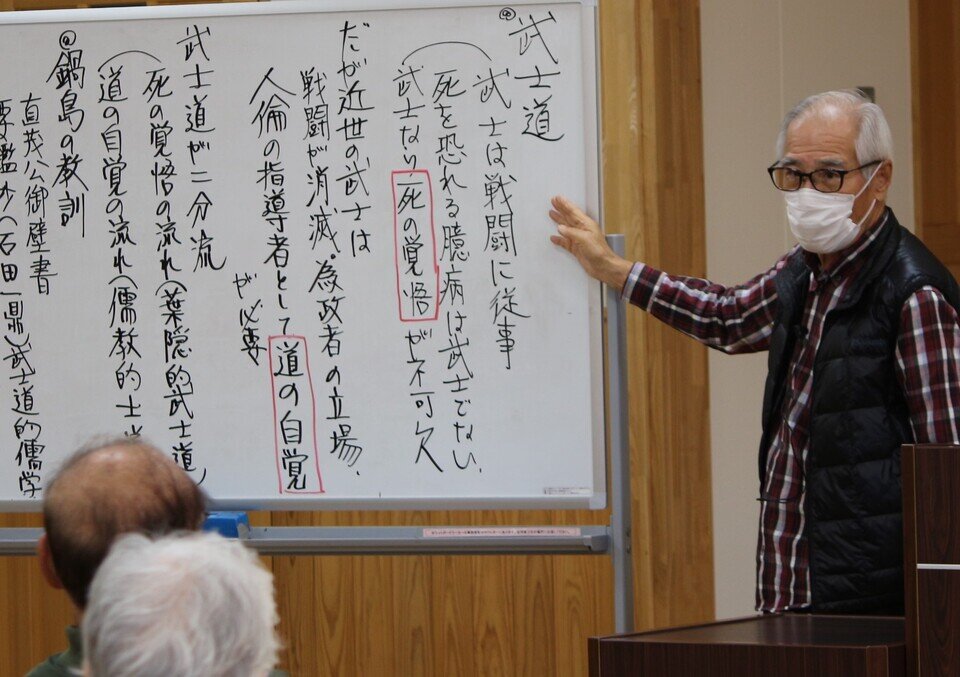 ◎武士道
武士は戦闘に従事
死を恐れる臆病は武士でない、
武士なり死の覚悟が不可欠
だが近世の武士は
戦闘が消滅。為政者の立場、
人倫の指導者として道の自覚
が必要
武士道が二分流
死の覚悟の流れ(葉隠的武士道)
道の自覚の流れ(儒教的士
◎鍋島の教訓
直茂公御壁書
要鑑抄(石田一鼎)武士道的儒学